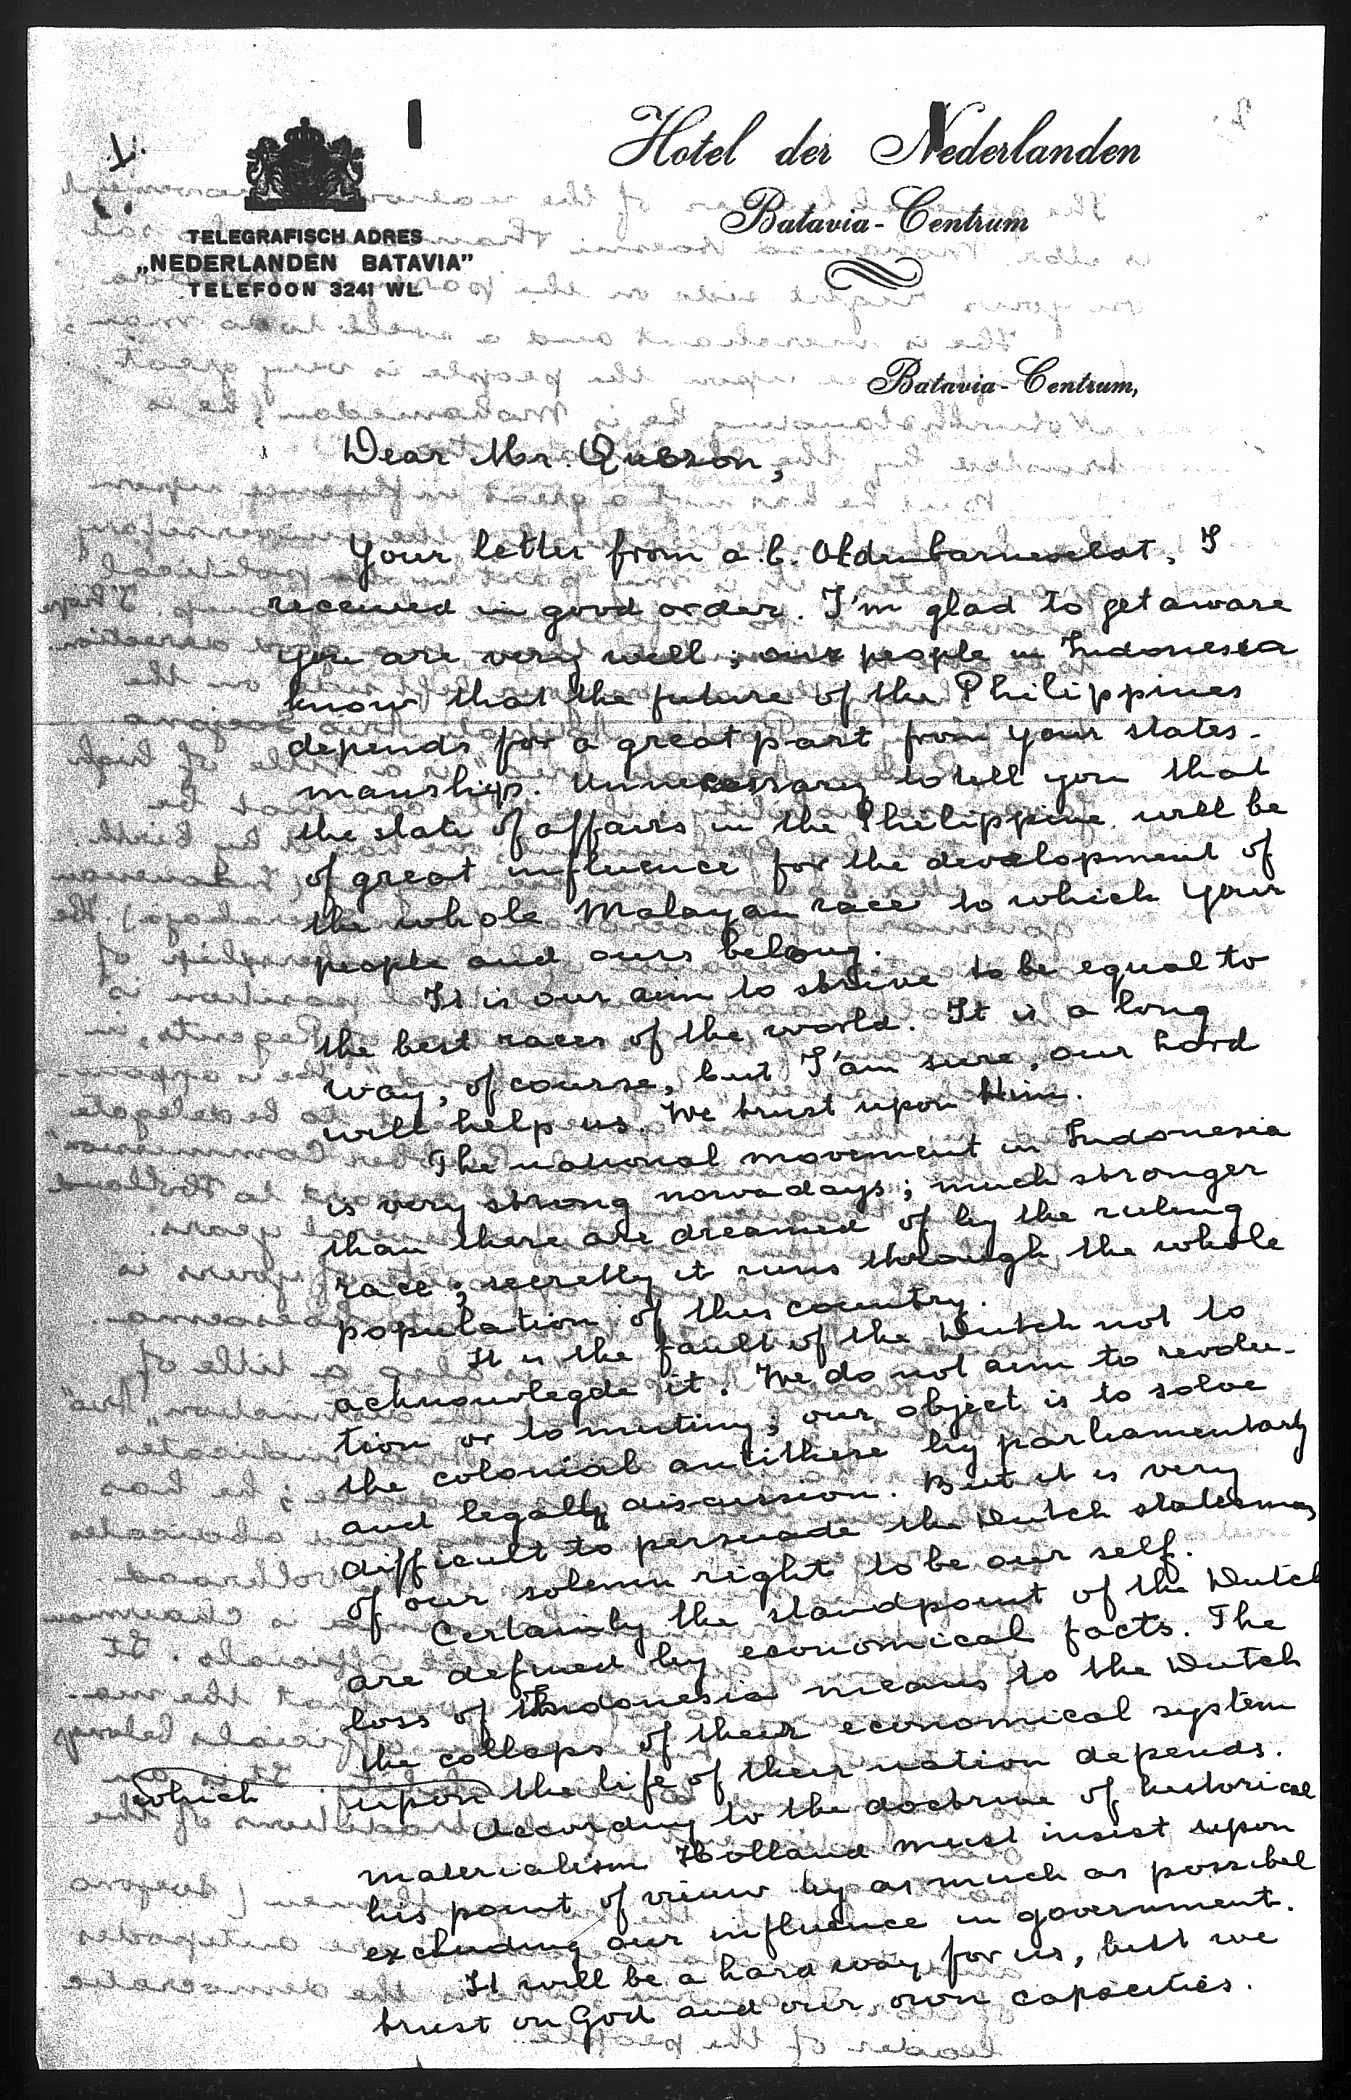 1.
Hotel der Nederlanden
Batavia-Centrum
TELEGRAFISCH ADRES
„NEDERLANDEN BATAVIA”
TELEFOON 3241 WL.
Batavia-Centrum,
Dear Mr. Quezon,
Your letter from a.b. Oldenbarnevelat, I
received in good order. I'm glad to get aware
you are very well; our people in Indonesia
know that the future of the Philippines
depends for a great part from your states-
manship. Unnecessary to tell you that
the state of affairs in the Philippine will be
of great influence for the development of
the whole Malayan race to which your
people and ours belong.
It is our aim to strive to be equal to
the best races of the world. It is a long
way, of course, but I'am sure, our Lord
will help us. We trust upon Him.
The national movement in Indonesia
is very strong nowadays; much stronger
than there are dreamed of by the ruling
race; secretly it runs through the whole
population of this country.
It is the fault of the Dutch not to
acknowlegde it. We do not aim to revolu-
tion or to mutiny; our object is to solve
the colonial antithese by parliamentary
and legally discussion. But it is very
difficult to persuade the Dutch statesmen
of our solemn right to be our self.
Certainly the standpoint of the Dutch
are defined by economical facts. The
loss of Indonesia means to the Dutch
the collaps of their economical system
which upon the life of their nation depends.
According to the doctrine of historical
materialism Holland must insist upon
his point of vieuw by as much as possibel
excluding our influence in government.
It will be a hard way for us, but we
trust on God and our own capacities.